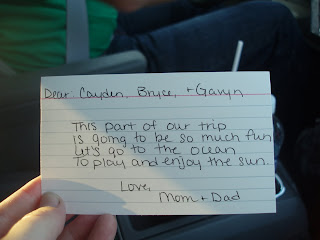 Dear Cayden, Bryce, + Gavyn
This part of our trip
is going to be so much fun
Let's go to the ocean
To play and enjoy the sun.
Love,
Mom + Dad